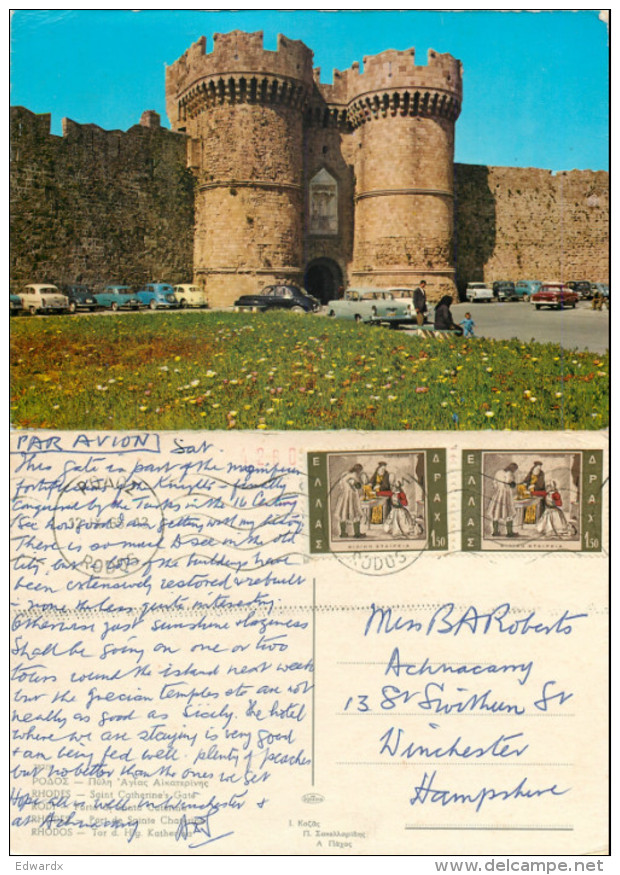 PAR AVION Sat
This Gate is part of the magnificent
fortifications of the Knights - finally
conquered by the Turks in the 16 Century
(See how good I am getting with my history
There is so much to see in the old
city, but lots of the buildings have
been extensively restored & rebuilt
- none the less quite interesting.
Otherwise just sunshine & laziness
Shall be going on one or two
tours round the island next week
but the Grecian temples etc are not
nearly as good as Sicily. The hotel
where we are staying is very good
& am being fed well. plenty of peaches
but no better than the ones we get
Hope all is well in Winchester &
at Achnacarry
ΡΟΔΟΣ — Πύλη Ἁγίας Αἰκατερίνης
RHODES — Saint Catherine's Gate
RHODES — Port de Sainte
RHODOS — Tor d. Hlg. Katherina
ΕΛΛΑΣ
ΔΡΑΧ
1.50
ΦΙΛΙΚΗ ΕΤΑΙΡΕΙΑ
ΕΛΛΑΣ
ΔΡΑΧ
1.50
ΦΙΛΙΚΗ ΕΤΑΙΡΕΙΑ
RODOS
RODOS
Miss B A Roberts
Achnacarry
13 St Swithun St
Winchester
Hampshire
Ι. Κοζᾶς
Π. Σακελλαρίδης
Λ Πάχος
Edwardx
delcampe.net